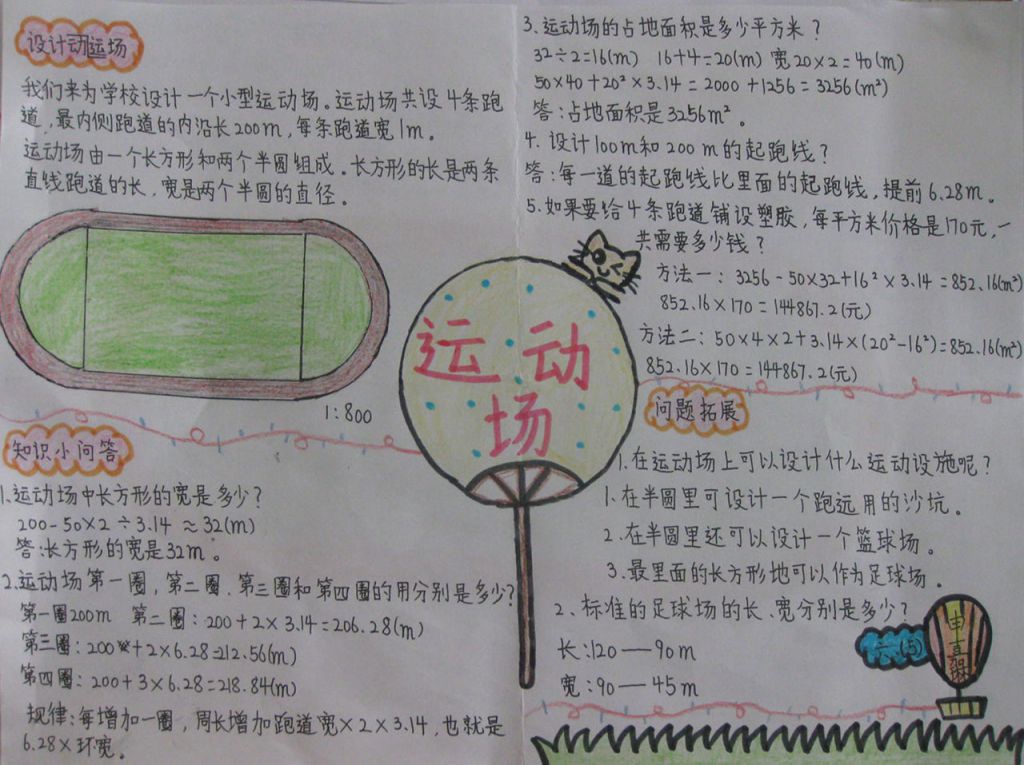 设计动运场
我们来为学校设计一个小型运动场。运动场共设4条跑
道,最内侧跑道的内沿长200m,每条跑道宽1m。
运动场由一个长方形和两个半圆组成。长方形的长是两条
直线跑道的长,宽是两个半圆的直径。
1:800
知识小问答
1.运动场中长方形的宽是多少?
200-50×2÷3.14≈32(m)
答:长方形的宽是32m。
2.运动场第一圈,第二圈.第三圈和第四圈的用分别是多少?
第一圈200m 第二圈:200+2×3.14=206.28(m)
第三圈:200+2×6.28=212.56(m)
第四圈:200+3×6.28=218.84(m)
规律:每增加一圈,周长增加跑道宽×2×3.14,也就是
6.28×环宽。
运动
场
3.运动场的占地面积是多少平方米?
32÷2=16(m) 16+4=20(m) 宽20×2=40(m)
50×40+20²×3.14=2000+1256=3256(m²)
答:占地面积是3256m²。
4.设计100m和200m的起跑线?
答:每一道的起跑线比里面的起跑线,提前6.28m。
5.如果要给4条跑道铺设塑胶,每平方米价格是170元,一
共需要多少钱?
方法一:3256-50×32+16²×3.14=852.16(m²)
852.16×170=144867.2(元)
方法二:50×4×2+3.14×(20²-16²)=852.16(m²)
852.16×170=144867.2(元)
问题拓展
1.在运动场上可以设计什么运动设施呢?
1.在半圆里可设计一个跑远用的沙坑。
2.在半圆里还可以设计一个篮球场。
3.最里面的长方形地可以作为足球场。
2.标准的足球场的长、宽分别是多少?
长:120—90m
宽:90—45m
六(5)